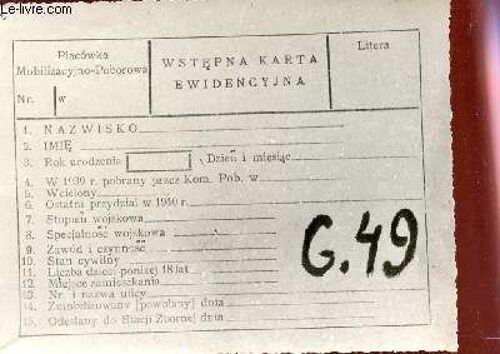 Le-livre.com
Placówka
Mobilizacyjno-Poborowa
Nr. w
WSTĘPNA KARTA
EWIDENCYJNA
Litera
1. NAZWISKO
2. IMIĘ
3. Rok urodzenia Dzień i miesiąc
4. W 1939 r. pobrany przez Kom. Pob. w
5. Wcielony
6. Ostatni przydział w 1940 r.
7. Stopień wojskowa
8. Specjalność wojskowa
9. Zawód i czynność
10. Stan cywilny
11. Liczba dzieci poniżej 18 lat
12. Miejsce zamieszkania
13. Nr. i nazwa ulicy
14. Zmobilizowany [powołany] dnia
15. Odesłany do Stacji Zbornej dnia
G.49